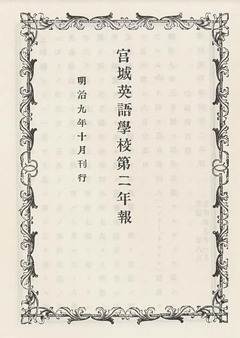 宮城英語學校第二年報
明治九年十月刊行